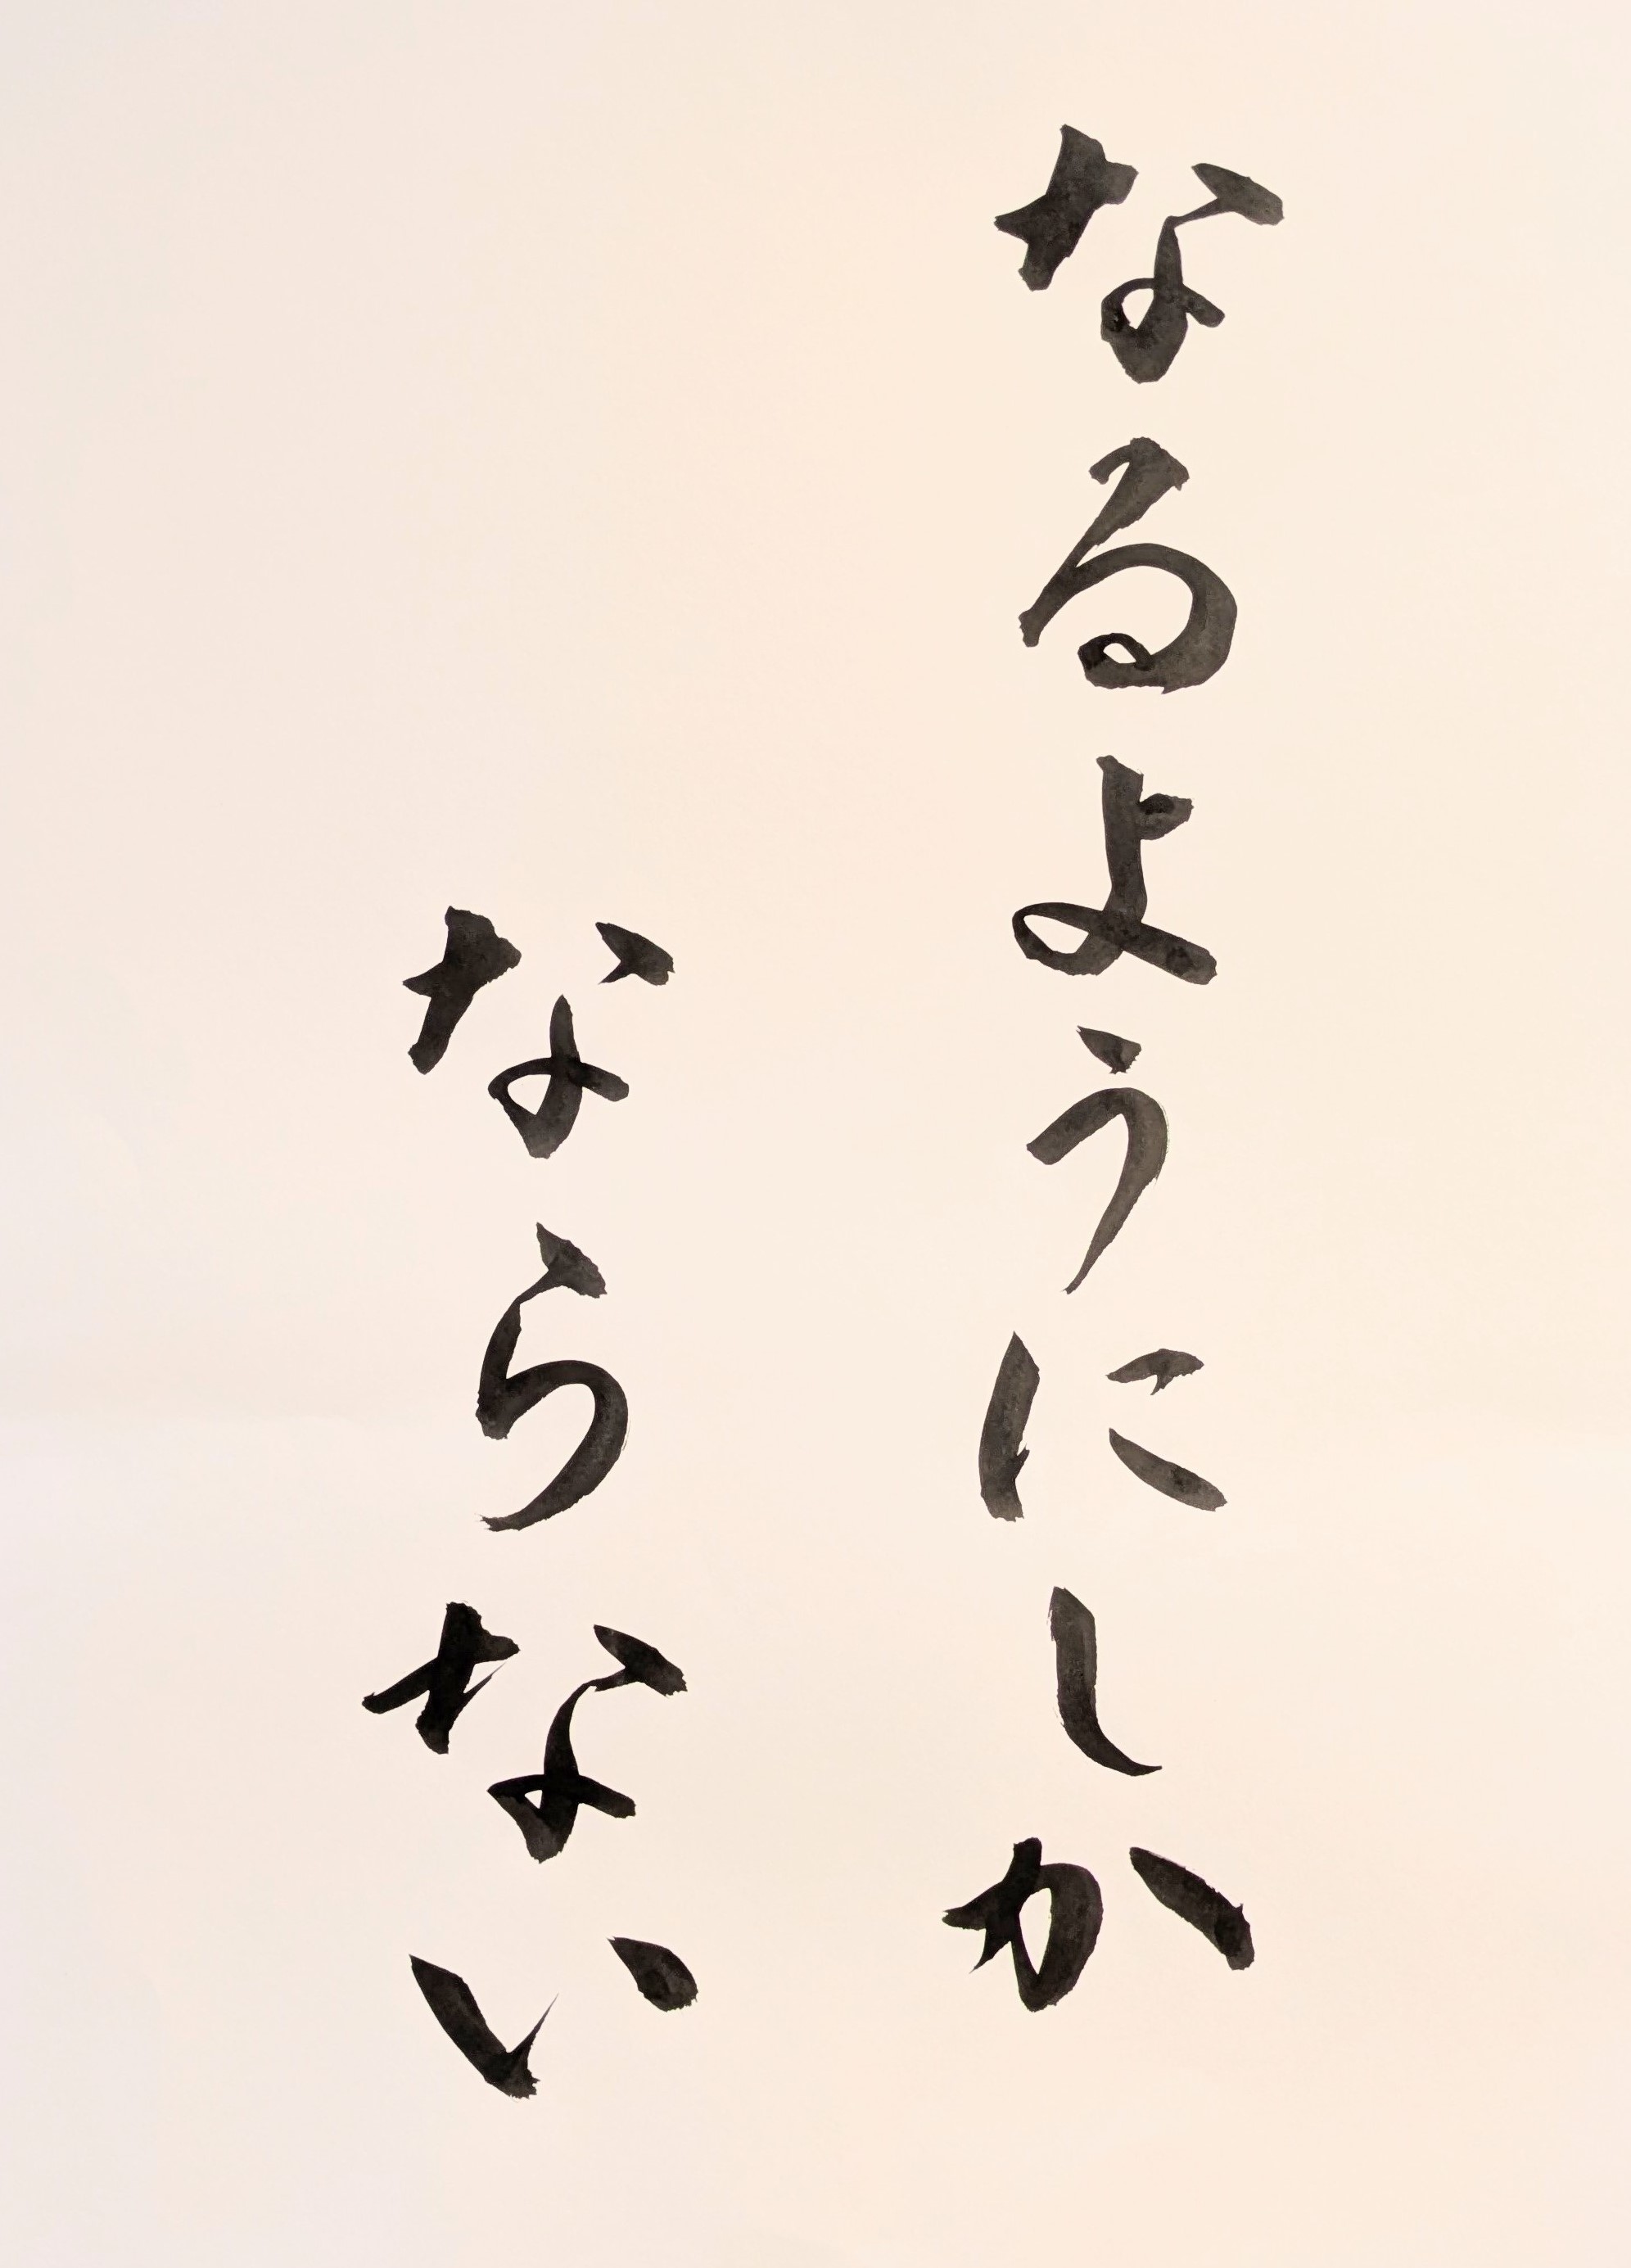 なるようにしか
ならない